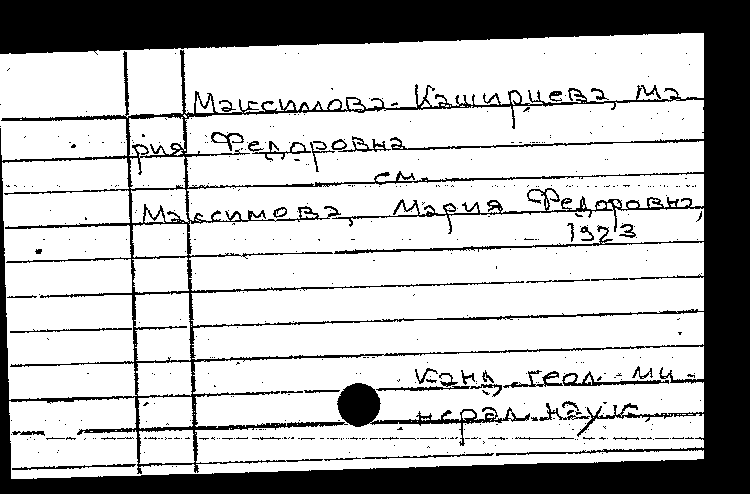 Максимова-Каширцева, Ма
рия Федоровна
см.
Максимова, Мария Федоровна,
1923
Канд. геол.-ми-
нерал. наук.